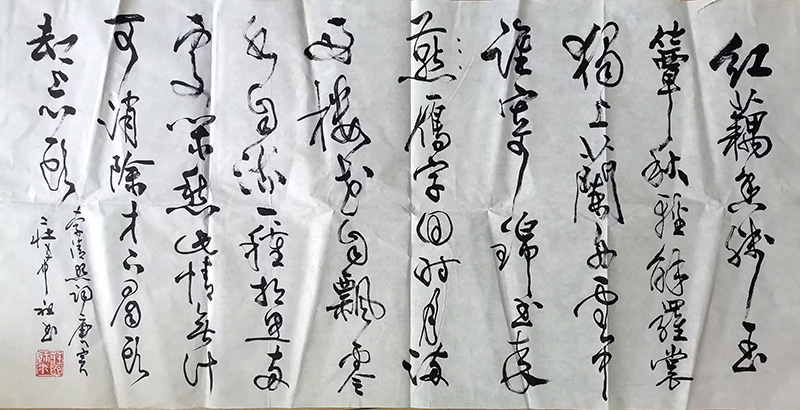 红藕香残玉
簟秋轻解羅裳
獨上蘭舟雲中
誰寄锦书来
燕雁字回时月满
西楼花自飄零
水自流一種相思两
處闲愁此情無计
可消除才下眉头
却上心头
李清照词庚寅
书